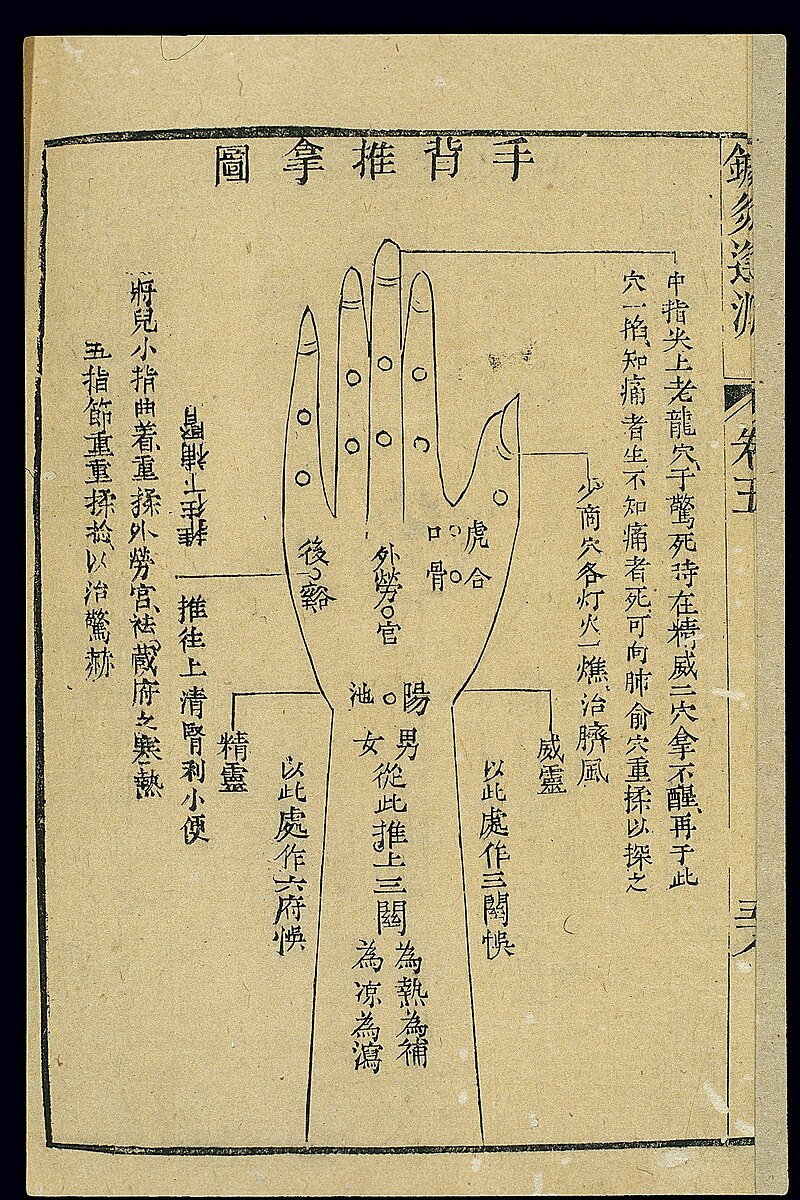 手背推拿圖
鍼灸逢源
卷五
中指尖上老龍穴于驚死時在精威二穴拿不醒再于此
穴一掐知痛者生不知痛者死可向肺俞穴重揉以探之
少商穴各灯火一燋治臍風
威靈
虎口
合骨
外勞官
後谿
陽池
男女從此推上三關
為熱為補
為凉為瀉
以此處作三關悞
以此處作六府悞
精靈
推往上清腎利小便
推往下補腎
將兒小指曲着重揉外勞宮祛藏府之寒熱
五指節重重揉捻以治驚赫